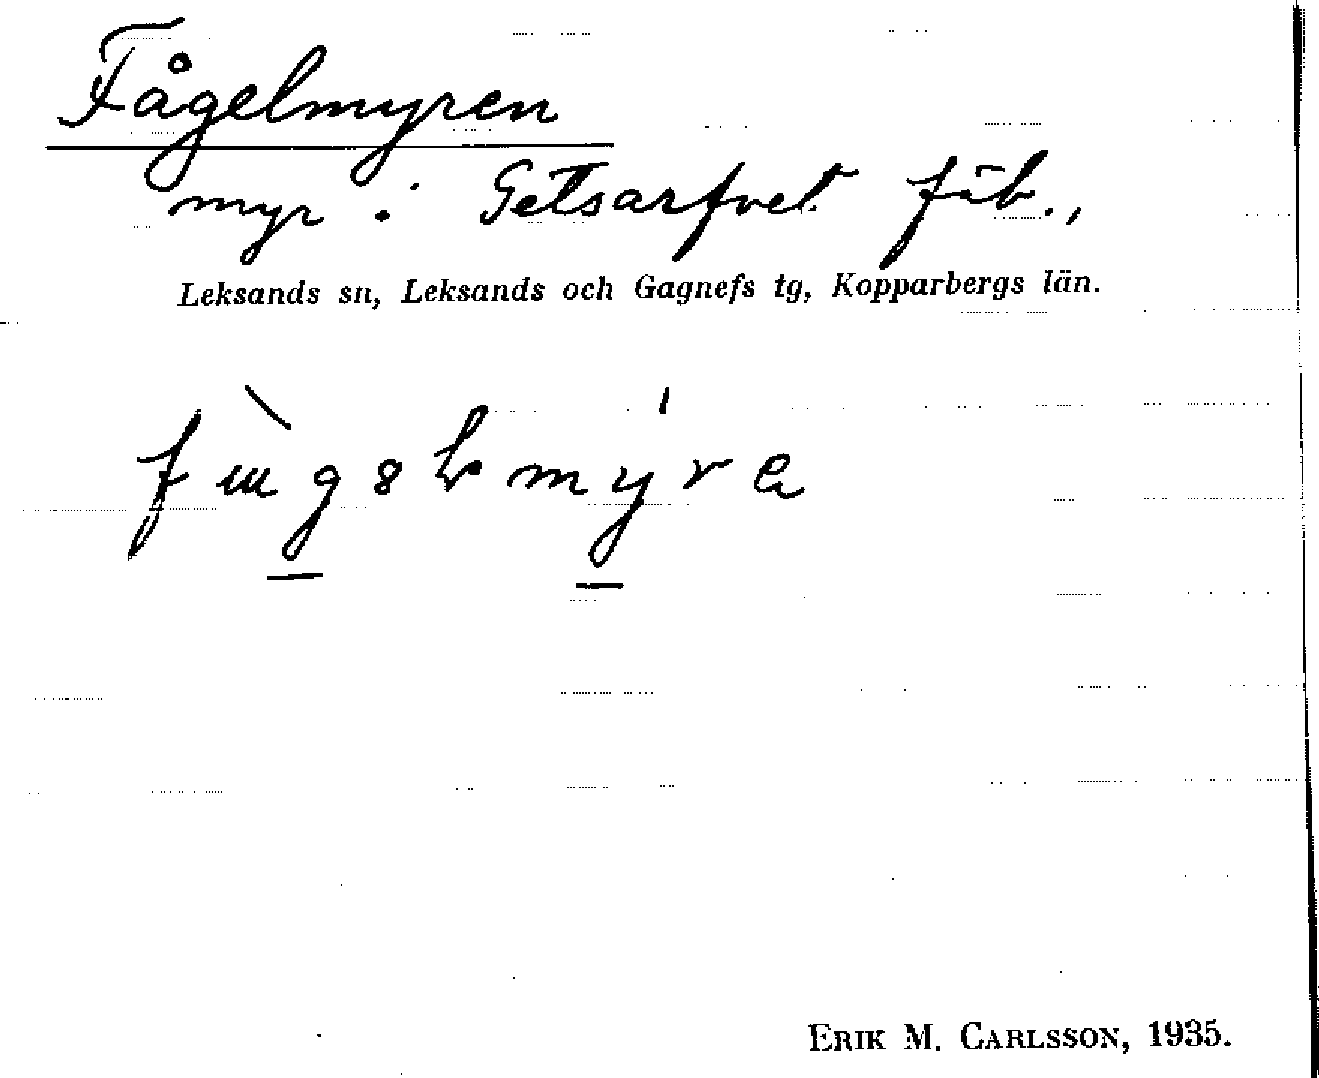 Fågelmyren
myr i Getsarfvet fäb.,
Leksands sn, Leksands och Gagnefs tg, Kopparbergs län.
ERIK M. CARLSSON, 1935.